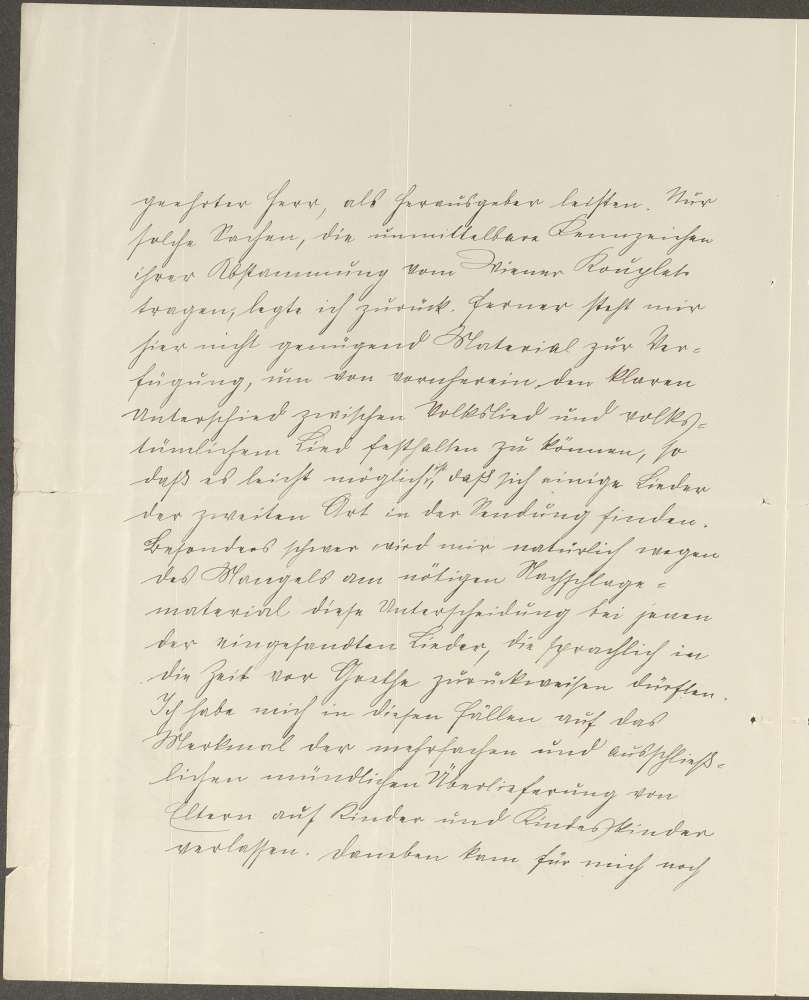 geehrter Herr, als Herausgeber leisten. Nur
solche Sachen, die unmittelbare Kennzeichen
ihrer Abstammung vom Wiener Kouplet
tragen, legte ich zurück. Ferner steht mir
hier nicht genügend Material zur Ver-
fügung, um von vornherein den klaren
Unterschied zwischen Volkslied und volks-
tümlichem Lied festhalten zu können, so
daß es leicht möglich ist, daß sich einige Lieder
der zweiten Art in der Sendung finden.
Besonders schwer wird mir natürlich wegen
des Mangels am nötigen Nachschlage-
material diese Unterscheidung bei jenen
der eingesandten Lieder, die sprachlich in
die Zeit vor Goethe zurückweisen dürften.
Ich habe mich in diesen Fällen auf das
Merkmal der mehrfachen und ausschließ-
lichen mündlichen Überlieferung von
Eltern auf Kinder und Kindeskinder
verlassen. Daneben kam für mich noch